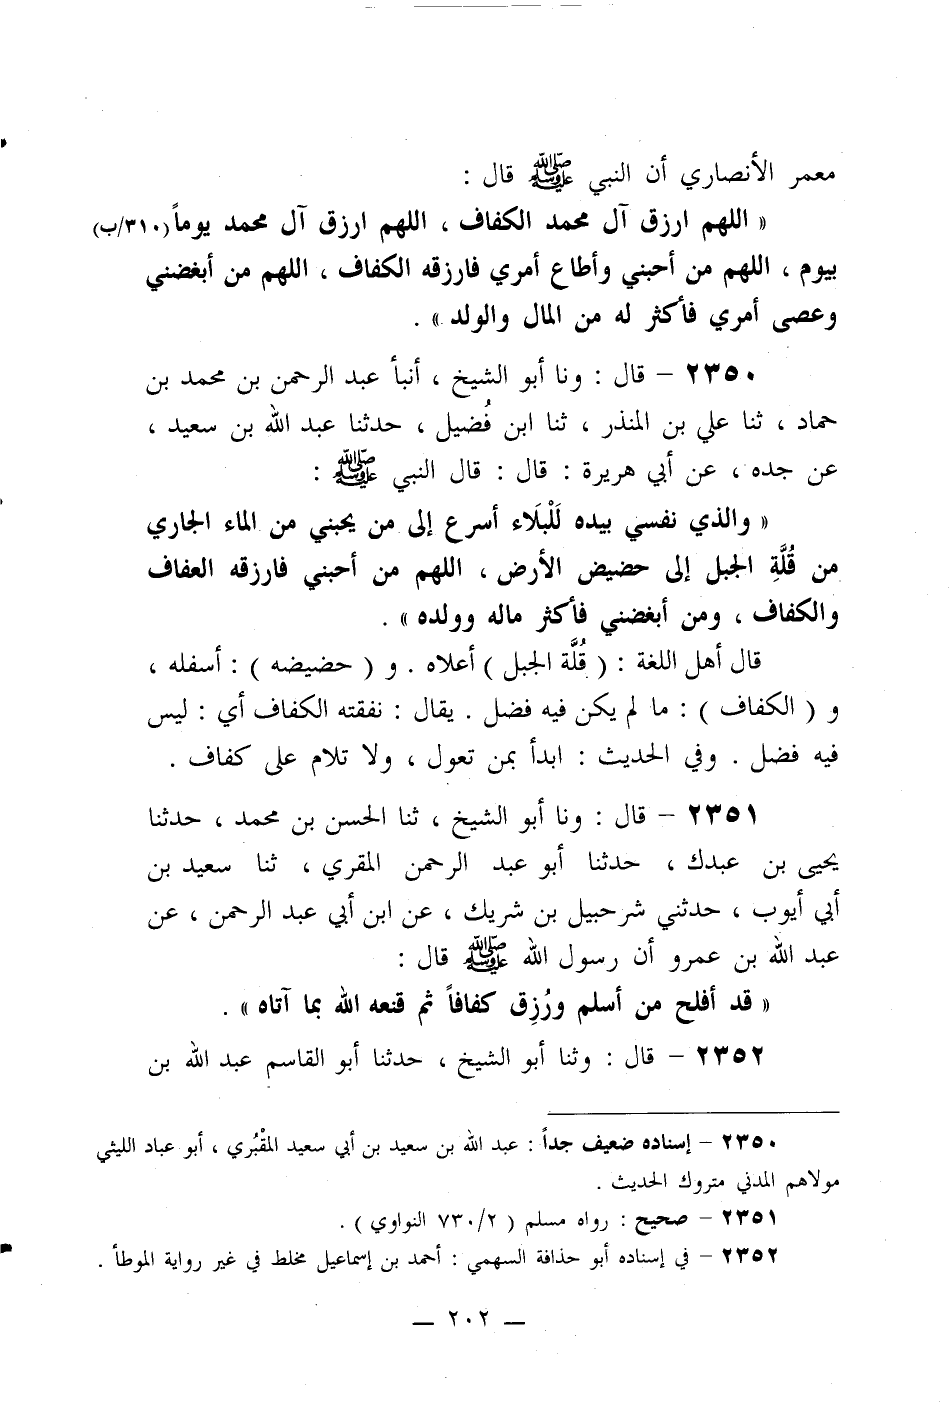 معمر الأنصاري أن النبي ﷺ قال :
« اللهم ارزق آل محمد الكفاف ، اللهم ارزق آل محمد يوماً (٣١٠/ب)
بيوم ، اللهم من أحبني وأطاع أمري فارزقه الكفاف ، اللهم من أبغضني
وعصى أمري فأكثر له من المال والولد » .
٢٣٥٠ – قال : ونا أبو الشيخ ، أنبأ عبد الرحمن بن محمد بن
حماد ، ثنا علي بن المنذر ، ثنا ابن فُضيل ، حدثنا عبد الله بن سعيد ،
عن جده ، عن أبي هريرة : قال : قال النبي ﷺ :
« والذي نفسي بيده لَلْبَلَاء أسرع إلى من يحبني من الماء الجاري
من قُلَّةِ الجبل إلى حضيض الأرض ، اللهم من أحبني فارزقه العفاف
والكفاف ، ومن أبغضني فأكثر ماله وولده » .
قال أهل اللغة : ( قُلَّة الجبل ) أعلاه . و ( حضيضه ) : أسفله ،
و ( الكفاف ) : ما لم يكن فيه فضل . يقال : نفقته الكفاف أي : ليس
فيه فضل . وفي الحديث : ابدأ بمن تعول ، ولا تلام على كفاف .
٢٣٥١ – قال : ونا أبو الشيخ ، ثنا الحسن بن محمد ، حدثنا
يحيى بن عبدك ، حدثنا أبو عبد الرحمن المقري ، ثنا سعيد بن
أبي أيوب ، حدثني شرحبيل بن شريك ، عن ابن أبي عبد الرحمن ، عن
عبد الله بن عمرو أن رسول الله ﷺ قال :
« قد أفلح من أسلم ورُزِق كفافاً ثم قنعه الله بما آتاه » .
٢٣٥٢ – قال : وثنا أبو الشيخ ، حدثنا أبو القاسم عبد الله بن
٢٣٥٠ – إسناده ضعيف جداً : عبد الله بن سعيد بن أبي سعيد المقْبُري ، أبو عباد الليثي
مولاهم المدني متروك الحديث .
٢٣٥١ – صحيح : رواه مسلم ( ٧٣٠/٢ النواوي ) .
٢٣٥٢ – في إسناده أبو حذافة السهمي : أحمد بن إسماعيل مخلط في غير رواية الموطأ .
– ٢٠٢ –